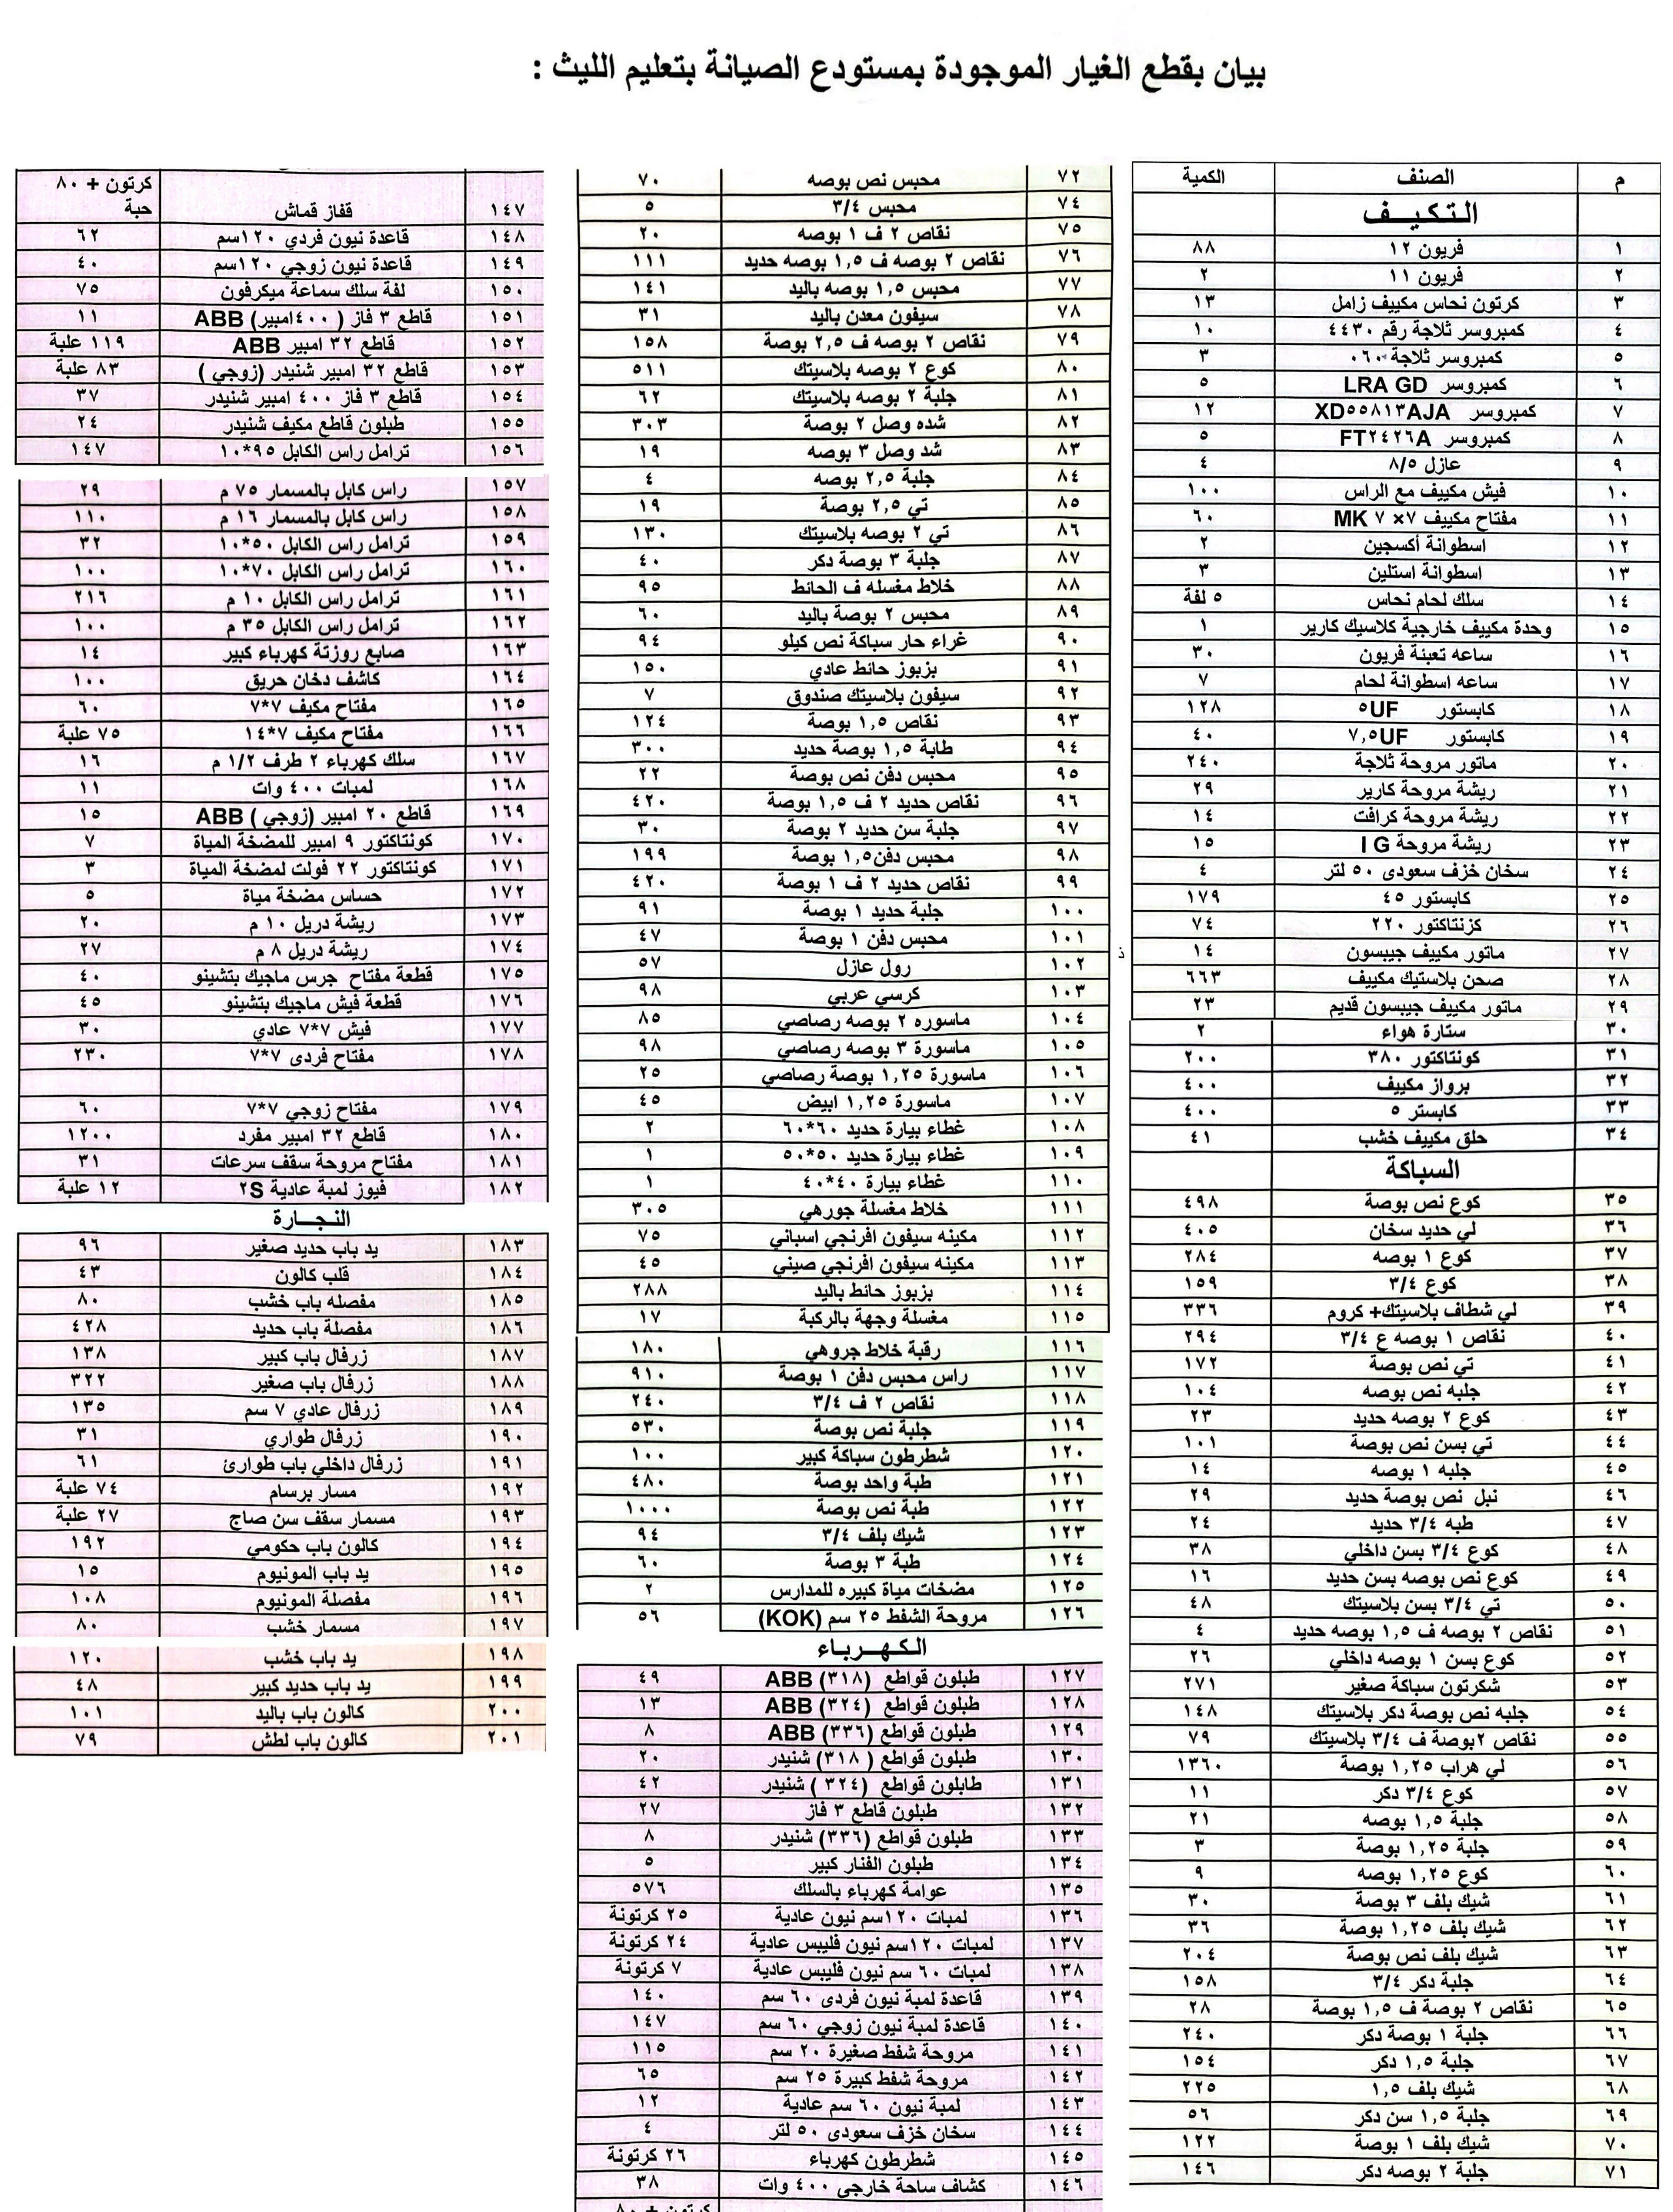 بيان بقطع الغيار الموجودة بمستودع الصيانة بتعليم الليث :
م الصنف الكمية
التكيـيـف
١ فريون ١٢ ٨٨
٢ فريون ١١ ٢
٣ كرتون نحاس مكييف زامل ١٣
٤ كمبروسر ثلاجة رقم ٤٤٣٠ ١٠
٥ كمبروسر ثلاجة ٠٦٠ ٣
٦ كمبروسر LRA GD ٥
٧ كمبروسر XD٥٥٨١٣AJA ١٢
٨ كمبروسر FT٢٤٢٦A ٥
٩ عازل ٨/٥ ٤
١٠ فيش مكييف مع الراس ١٠٠
١١ مفتاح مكييف ٧× ٧ MK ٦٠
١٢ اسطوانة أكسجين ٢
١٣ اسطوانة استلين ٣
١٤ سلك لحام نحاس ٥ لفة
١٥ وحدة مكييف خارجية كلاسيك كارير ١
١٦ ساعه تعبئة فريون ٣٠
١٧ ساعه اسطوانة لحام ٧
١٨ كابستور ٥UF ١٢٨
١٩ كابستور ٧,٥UF ٤٠
٢٠ ماتور مروحة ثلاجة ٢٤٠
٢١ ريشة مروحة كارير ٢٩
٢٢ ريشة مروحة كرافت ١٤
٢٣ ريشة مروحة I G ١٥
٢٤ سخان خزف سعودى ٥٠ لتر ٤
٢٥ كابستور ٤٥ ١٧٩
٢٦ كزنتاكتور ٢٢٠ ٧٤
٢٧ ماتور مكييف جيبسون ١٤
٢٨ صحن بلاستيك مكييف ٦٦٣
٢٩ ماتور مكييف جيبسون قديم ٢٣
٣٠ ستارة هواء ٢
٣١ كونتاكتور ٣٨٠ ٢٠٠
٣٢ برواز مكييف ٤٠٠
٣٣ كابستر ٥ ٤٠٠
٣٤ حلق مكييف خشب ٤١
السباكة
٣٥ كوع نص بوصة ٤٩٨
٣٦ لي حديد سخان ٤٠٥
٣٧ كوع ١ بوصه ٢٨٤
٣٨ كوع ٣/٤ ١٥٩
٣٩ لي شطاف بلاسيتك+ كروم ٣٣٦
٤٠ نقاص ١ بوصه ع ٣/٤ ٢٩٤
٤١ تي نص بوصة ١٧٢
٤٢ جلبه نص بوصه ١٠٤
٤٣ كوع ٢ بوصه حديد ٢٣
٤٤ تي بسن نص بوصة ١٠١
٤٥ جلبه ١ بوصه ١٤
٤٦ نبل نص بوصة حديد ٢٩
٤٧ طبه ٣/٤ حديد ٢٤
٤٨ كوع ٣/٤ بسن داخلي ٣٨
٤٩ كوع نص بوصه بسن حديد ١٦
٥٠ تي ٣/٤ بسن بلاسيتك ٤٨
٥١ نقاص ٢ بوصه ف ١,٥ بوصه حديد ٤
٥٢ كوع بسن ١ بوصه داخلي ٢٦
٥٣ شكرتون سباكة صغير ٢٧١
٥٤ جلبه نص بوصة دكر بلاسيتك ١٤٨
٥٥ نقاص ٢بوصة ف ٣/٤ بلاسيتك ٧٩
٥٦ لي هراب ١,٢٥ بوصة ١٣٦٠
٥٧ كوع ٣/٤ دكر ١١
٥٨ جلبة ١,٥ بوصه ٢١
٥٩ جلبة ١,٢٥ بوصة ٣
٦٠ كوع ١,٢٥ بوصه ٩
٦١ شيك بلف ٣ بوصة ٣٠
٦٢ شيك بلف ١,٢٥ بوصة ٣٦
٦٣ شيك بلف نص بوصة ٢٠٤
٦٤ جلبة دكر ٣/٤ ١٥٨
٦٥ نقاص ٢ بوصة ف ١,٥ بوصة ٢٨
٦٦ جلبة ١ بوصة دكر ٢٤٠
٦٧ جلبة ١,٥ دكر ١٥٤
٦٨ شيك بلف ١,٥ ٢٢٥
٦٩ جلبة ١,٥ سن دكر ٥٦
٧٠ شيك بلف ١ بوصة ١٢٢
٧١ جلبة ٢ بوصه دكر ١٤٦
٧٢ محبس نص بوصه ٧٠
٧٤ محبس ٣/٤ ٥
٧٥ نقاص ٢ ف ١ بوصه ٢٠
٧٦ نقاص ٢ بوصه ف ١,٥ بوصه حديد ١١١
٧٧ محبس ١,٥ بوصه باليد ١٤١
٧٨ سيفون معدن باليد ٣١
٧٩ نقاص ٢ بوصه ف ٢,٥ بوصة ١٥٨
٨٠ كوع ٢ بوصه بلاسيتك ٥١١
٨١ جلبة ٢ بوصه بلاسيتك ٦٢
٨٢ شده وصل ٢ بوصة ٣٠٣
٨٣ شد وصل ٣ بوصه ١٩
٨٤ جلبة ٢,٥ بوصه ٤
٨٥ تي ٢,٥ بوصة ١٩
٨٦ تي ٢ بوصه بلاسيتك ١٣٠
٨٧ جلبة ٣ بوصة دكر ٤٠
٨٨ خلاط مغسله ف الحائط ٩٥
٨٩ محبس ٢ بوصة باليد ٦٠
٩٠ غراء حار سباكة نص كيلو ٩٤
٩١ بزبوز حائط عادي ١٥٠
٩٢ سيفون بلاسيتك صندوق ٧
٩٣ نقاص ١,٥ بوصة ١٢٤
٩٤ طابة ١,٥ بوصة حديد ٣٠٠
٩٥ محبس دفن نص بوصة ٢٢
٩٦ نقاص حديد ٢ ف ١,٥ بوصة ٤٢٠
٩٧ جلبة سن حديد ٢ بوصة ٣٠
٩٨ محبس دفن١,٥ بوصة ١٩٩
٩٩ نقاص حديد ٢ ف ١ بوصة ٤٢٠
١٠٠ جلبة حديد ١ بوصة ٩١
١٠١ محبس دفن ١ بوصة ٤٧
١٠٢ رول عازل ٥٧
١٠٣ كرسي عربي ٩٨
١٠٤ ماسوره ٢ بوصه رصاصي ٨٥
١٠٥ ماسورة ٣ بوصه رصاصي ٩٨
١٠٦ ماسورة ١,٢٥ بوصة رصاصي ٢٥
١٠٧ ماسورة ١,٢٥ ابيض ٤٥
١٠٨ غطاء بيارة حديد ٦٠*٦٠ ٢
١٠٩ غطاء بيارة حديد ٥٠*٥٠ ١
١١٠ غطاء بيارة ٤٠*٤٠ ١
١١١ خلاط مغسلة جورهي ٣٠٥
١١٢ مكينه سيفون افرنجي اسباني ٧٥
١١٣ مكينه سيفون افرنجي صيني ٤٥
١١٤ بزبوز حائط باليد ٢٨٨
١١٥ مغسلة وجهة بالركبة ١٧
١١٦ رقبة خلاط جروهي ١٨٠
١١٧ راس محبس دفن ١ بوصة ٩١٠
١١٨ نقاص ٢ ف ٣/٤ ٢٤٠
١١٩ جلبة نص بوصة ٥٣٠
١٢٠ شطرطون سباكة كبير ١٠٠
١٢١ طبة واحد بوصة ٤٨٠
١٢٢ طبة نص بوصة ١٠٠٠
١٢٣ شيك بلف ٣/٤ ٩٤
١٢٤ طبة ٣ بوصة ٦٠
١٢٥ مضخات مياة كبيره للمدارس ٢
١٢٦ مروحة الشفط ٢٥ سم (KOK) ٥٦
الكهـربـاء
١٢٧ طبلون قواطع (٣١٨) ABB ٤٩
١٢٨ طبلون قواطع (٣٢٤) ABB ١٣
١٢٩ طبلون قواطع (٣٣٦) ABB ٨
١٣٠ طبلون قواطع (٣١٨ ) شنيدر ٢٠
١٣١ طابلون قواطع (٣٢٤ ) شنيدر ٤٢
١٣٢ طبلون قاطع ٣ فاز ٢٧
١٣٣ طبلون قواطع (٣٣٦) شنيدر ٨
١٣٤ طبلون الفنار كبير ٥
١٣٥ عوامة كهرباء بالسلك ٥٧٦
١٣٦ لمبات ١٢٠سم نيون عادية ٢٥ كرتونة
١٣٧ لمبات ١٢٠سم نيون فليبس عادية ٢٤ كرتونة
١٣٨ لمبات ٦٠ سم نيون فليبس عادية ٧ كرتونة
١٣٩ قاعدة لمبة نيون فردى ٦٠ سم ١٤٠
١٤٠ قاعدة لمبة نيون زوجي ٦٠ سم ١٤٧
١٤١ مروحة شفط صغيرة ٢٠ سم ١١٥
١٤٢ مروحة شفط كبيرة ٢٥ سم ٦٥
١٤٣ لمبة نيون ٦٠ سم عادية ١٢
١٤٤ سخان خزف سعودى ٥٠ لتر ٤
١٤٥ شطرطون كهرباء ٢٦ كرتونة
١٤٦ كشاف ساحة خارجي ٤٠٠ وات ٣٨
كرتون + ٨٠
كرتون + ٨٠
١٤٧ قفاز قماش حبة
١٤٨ قاعدة نيون فردي ١٢٠سم ٦٢
١٤٩ قاعدة نيون زوجي ١٢٠سم ٤٠
١٥٠ لفة سلك سماعة ميكرفون ٧٥
١٥١ قاطع ٣ فاز ( ٤٠٠امبير) ABB ١١
١٥٢ قاطع ٣٢ امبير ABB ١١٩ علبة
١٥٣ قاطع ٣٢ امبير شنيدر (زوجي ) ٨٣ علبة
١٥٤ قاطع ٣ فاز ٤٠٠ امبير شنيدر ٣٧
١٥٥ طبلون قاطع مكيف شنيدر ٢٤
١٥٦ ترامل راس الكابل ٩٥*١٠ ١٤٧
١٥٧ راس كابل بالمسمار ٧٥ م ٢٩
١٥٨ راس كابل بالمسمار ١٦ م ١١٠
١٥٩ ترامل راس الكابل ٥٠*١٠ ٣٢
١٦٠ ترامل راس الكابل ٧٠*١٠ ١٠٠
١٦١ ترامل راس الكابل ١٠ م ٢١٦
١٦٢ ترامل راس الكابل ٣٥ م ١٠٠
١٦٣ صابع روزتة كهرباء كبير ١٤
١٦٤ كاشف دخان حريق ١٠٠
١٦٥ مفتاح مكيف ٧*٧ ٦٠
١٦٦ مفتاح مكيف ٧*١٤ ٧٥ علبة
١٦٧ سلك كهرباء ٢ طرف ١/٢ م ١٦
١٦٨ لمبات ٤٠٠ وات ١١
١٦٩ قاطع ٢٠ امبير (زوجي ) ABB ١٥
١٧٠ كونتاكتور ٩ امبير للمضخة المياة ٧
١٧١ كونتاكتور ٢٢ فولت لمضخة المياة ٣
١٧٢ حساس مضخة مياة ٥
١٧٣ ريشة دريل ١٠ م ٢٠
١٧٤ ريشة دريل ٨ م ٢٧
١٧٥ قطعة مفتاح جرس ماجيك بتشينو ٤٠
١٧٦ قطعة فيش ماجيك بتشينو ٤٥
١٧٧ فيش ٧*٧ عادي ٣٠
١٧٨ مفتاح فردى ٧*٧ ٢٣٠
١٧٩ مفتاح زوجي ٧*٧ ٦٠
١٨٠ قاطع ٣٢ امبير مفرد ١٢٠٠
١٨١ مفتاح مروحة سقف سرعات ٣١
١٨٢ فيوز لمبة عادية ٢S ١٢ علبة
النـجـــارة
١٨٣ يد باب حديد صغير ٩٦
١٨٤ قلب كالون ٤٣
١٨٥ مفصله باب خشب ٨٠
١٨٦ مفصلة باب حديد ٤٢٨
١٨٧ زرفال باب كبير ١٣٨
١٨٨ زرفال باب صغير ٣٢٢
١٨٩ زرفال عادي ٧ سم ١٣٥
١٩٠ زرفال طواري ٣١
١٩١ زرفال داخلي باب طوارئ ٦١
١٩٢ مسار برسام ٧٤ علبة
١٩٣ مسمار سقف سن صاج ٢٧ علبة
١٩٤ كالون باب حكومي ١٩٢
١٩٥ يد باب المونيوم ١٥
١٩٦ مفصلة المونيوم ١٠٨
١٩٧ مسمار خشب ٨٠
١٩٨ يد باب خشب ١٢٠
١٩٩ يد باب حديد كبير ٤٨
٢٠٠ كالون باب باليد ١٠١
٢٠١ كالون باب لطش ٧٩